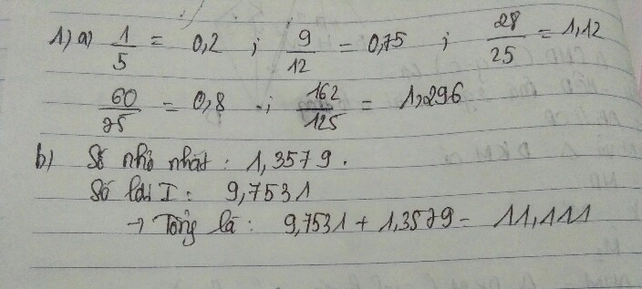 1) a) 1/5 = 0,2 ; 9/12 = 0,75 ; 28/25 = 1,12
60/75 = 0,8 ; 162/125 = 1,296
b) Số nhỏ nhất : 1,3579.
Số lớn I : 9,7531
→ Tổng là : 9,7531 + 1,3579 = 11,111